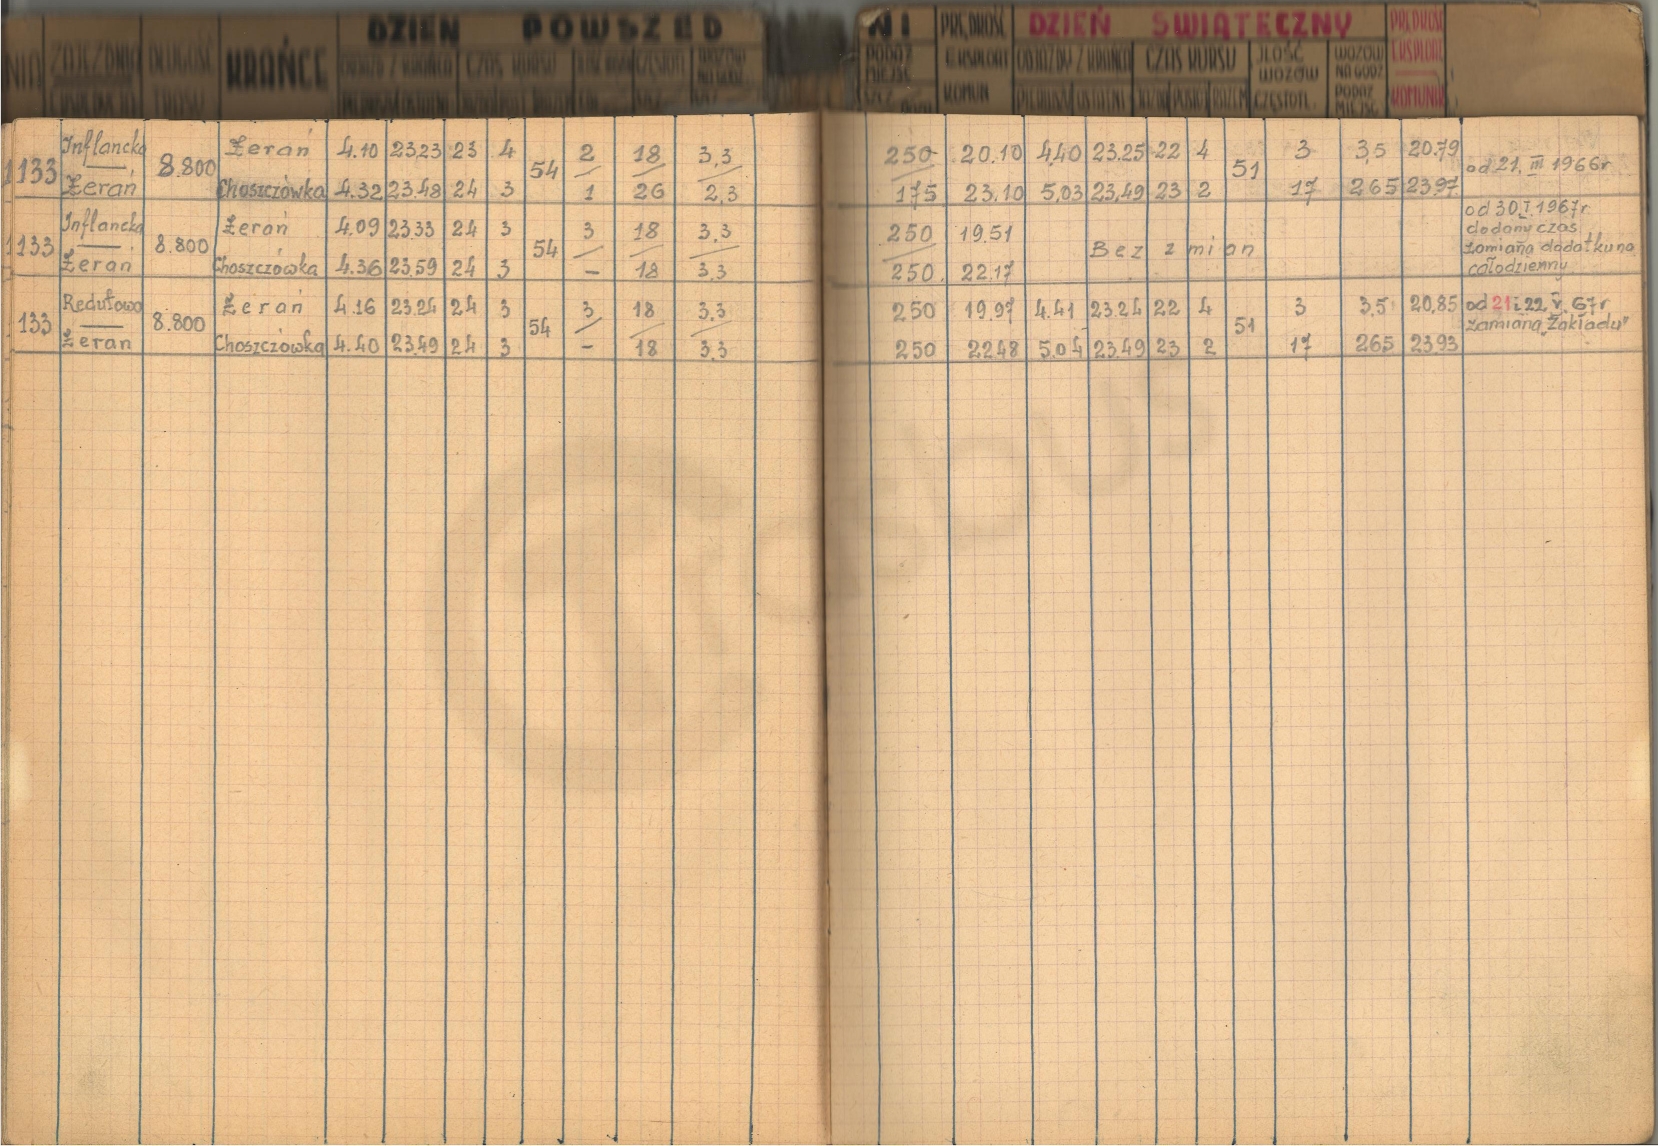 DZIEŃ POWSZED
NI PRĘDKOŚĆ DZIEŃ ŚWIĄTECZNY PRĘDKOŚĆ
NIA ZAJEZDNIA DŁUGOŚĆ KRAŃCE ODJAZDY Z KRAŃCA CZAS KURSU WOZÓW NA GODZ.
PODAŻ MIEJSC EKSPLOAT ODJAZDY Z KRAŃCA CZAS KURSU ILOŚĆ WOZÓW WOZÓW NA GODZ EKSPLOAT
TRASY
KOMUN PIERWSZY OSTATNI JAZDA POSTÓJ RAZEM CZĘSTOTL. PODAŻ MIEJSC KOMUNIK
133 Inflancka 8.800 Żerań 4.10 23.23 23 4 54 2 18 3,3 250 20.10 4.40 23.25 22 4 51 3 3,5 20.79 od 21. III 1966r
Żerań Choszczówka 4.32 23.48 24 3 1 26 2,3 175 23.10 5.03 23.49 23 2 17 265 23.97
133 Inflancka 8.800 Żerań 4.09 23.33 24 3 54 3 18 3,3 250 19.51 Bez zmian od 30.I.1967r
dodany czas
zamiana dodatku na
Żerań Choszczówka 4.36 23.59 24 3 – 18 3,3 250. 22.17 całodzienny
133 Redutowa 8.800 Żerań 4.16 23.24 24 3 54 3 18 3,3 250 19.97 4.41 23.24 22 4 51 3 3,5 20,85 od 21 i 22. V. 67r
zamiana "Zakładu"
Żerań Choszczówka 4.40 23.49 24 3 – 18 3,3 250 22.48 5.04 23.49 23 2 17 265 23.93